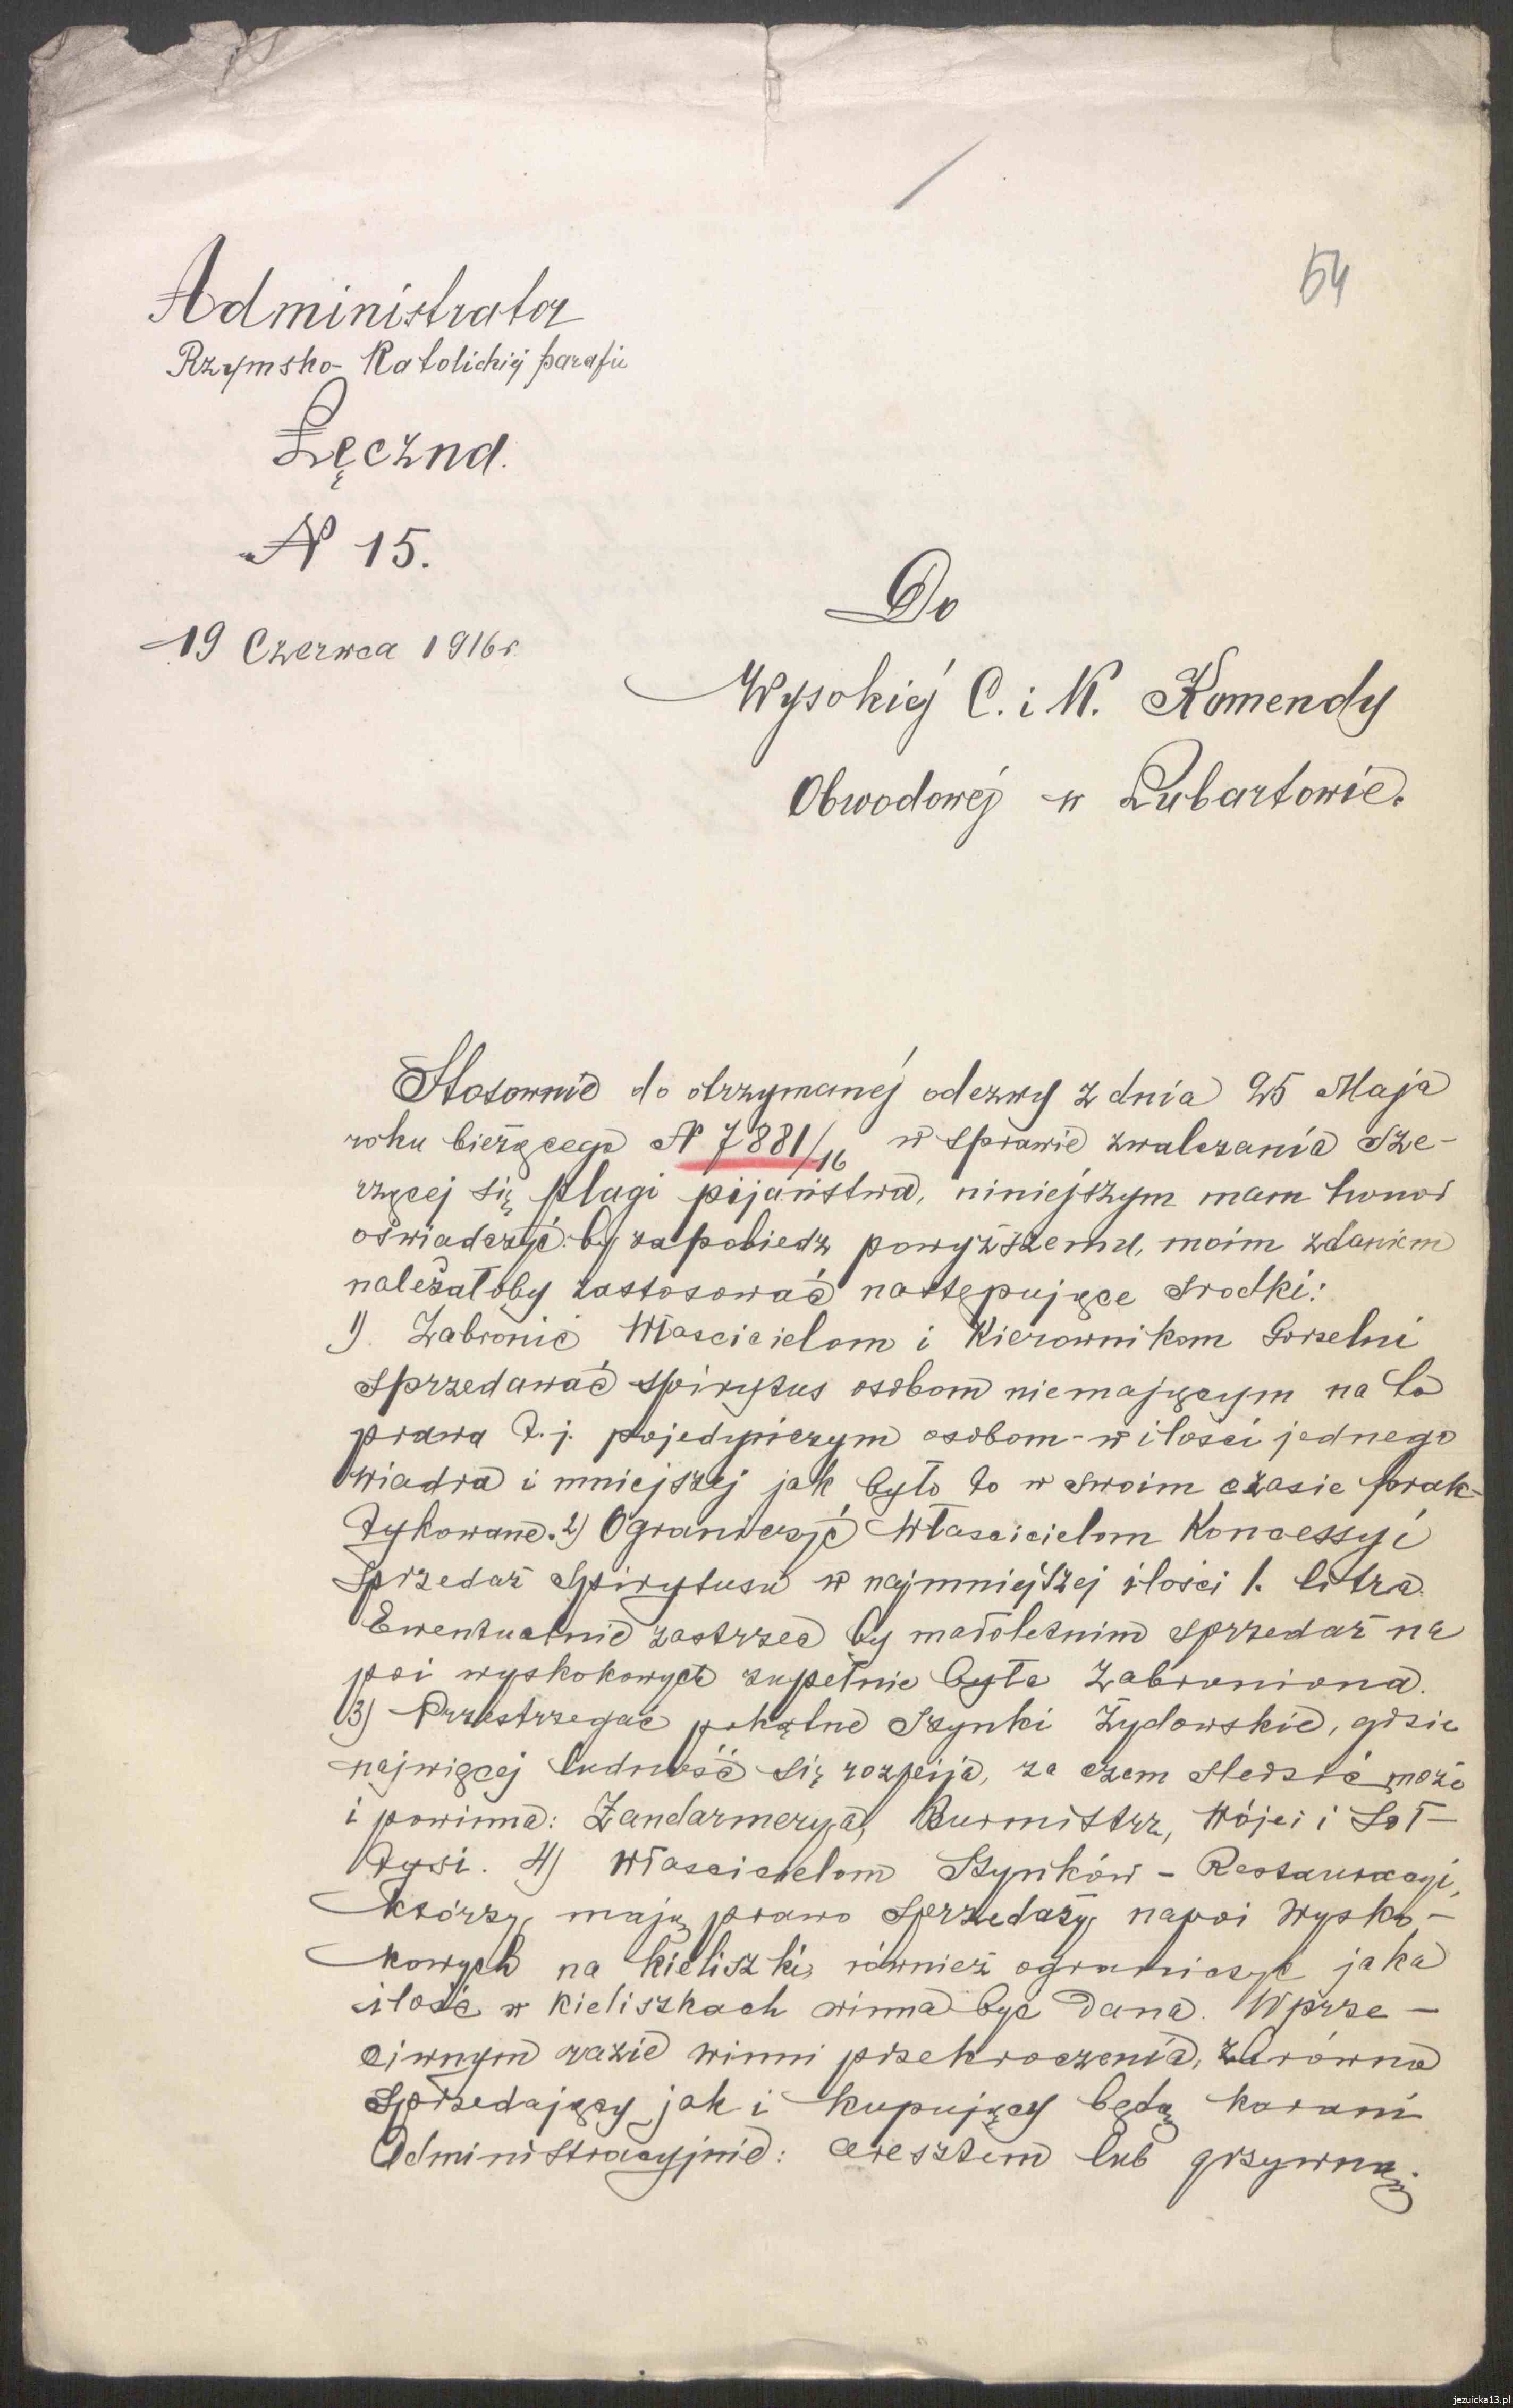 54
Administrator
Rzymsko-Katolickiej parafii
Łęczna.
№ 15.
19 Czerwca 1916 r.
Do
Wysokiej C. i K. Komendy
Obwodowéj w Lubartowie.
Stosownie do otrzymanéj odezwy z dnia 25 Maja
roku bieżącego № 7881/16 w sprawie zwalczania sze-
rzącej się plagi pijaństwa, niniejszym mam honor
oświadczyć: by zapobiedz powyższemu, moim zdaniem
należałoby zastosować następujące srodki:
1) Zabronić Włascicielom i Kierownikom Gorzelni
sprzedawać spirytus osobom niemającym na to
prawa t. j. pojedyńczym osobom - w ilości jednego
wiadra i mniejszej jak było to w swoim czasie prak-
tykowane. 2) Ograniczyć Włascicielom Koncessyi
sprzedaż spirytusu w najmniejszej ilości 1. litra.
Ewentualnie zastrzec by małoletnim sprzedaż na
poi wyskokowych zupełnie była zabroniona.
3) Przestrzegać pokątne szynki Żydowskie, gdzie
najwięcej ludność się rozpija, za czem sledzić może
i powinna: Żandarmerya, Burmistrz, Wójci i Soł-
tysi. 4) Włascicielom Szynków - Restauracyi,
którzy mają prawo sprzedaży napoi wysko-
kowych na kieliszki, również ograniczyć jaka
ilość w kieliszkach winna być dana. W prze-
ciwnym razie winni przekroczenia, zarówno
sprzedający jak i kupujący będą karani
Administracyjnie: aresztem lub grzywną.
jezuicka13.pl